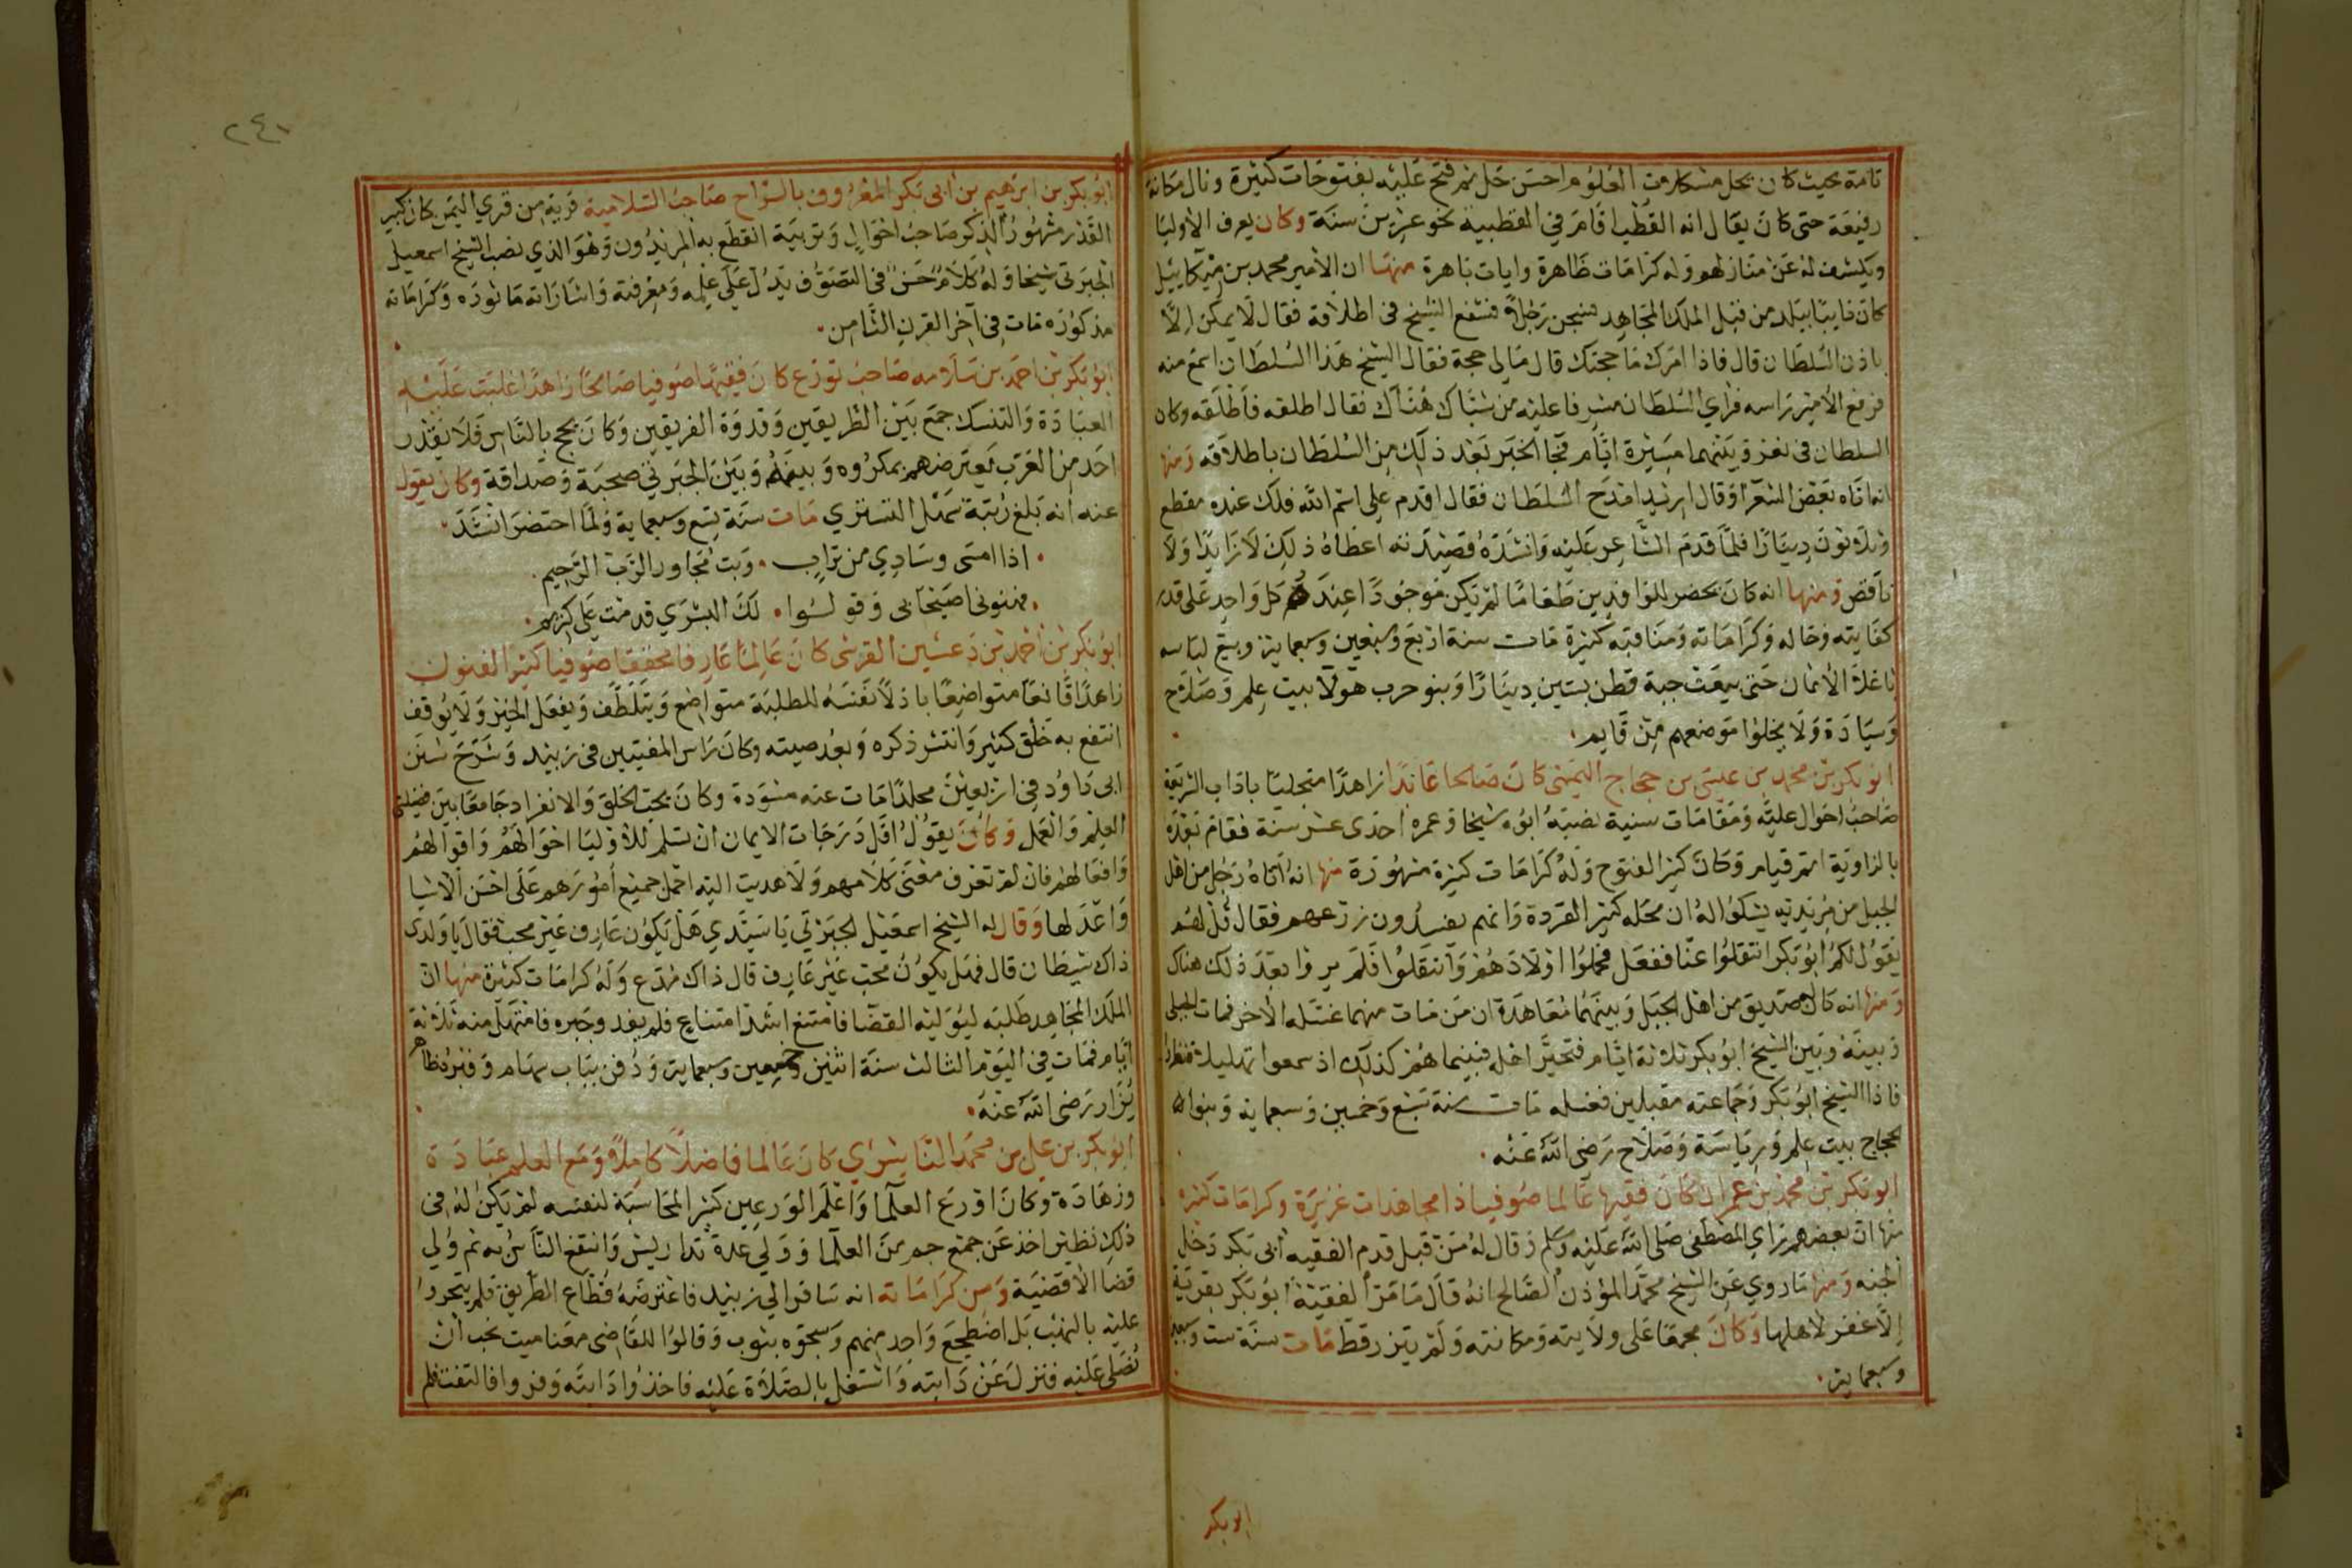 تامة بحيث كان يحل مشكلات العلوم احسن حل ثم فتح عليه بفتوحات كثيرة ونال مكانة
رفيعة حتى كان يقال انه القطب اقام في القطبية نحو عشرين سنة وكان يعرف الاوليا
ويكشف له عن منازلهم وله كرامات ظاهرة وايات باهرة منها ان الامير محمد بن ميكاييل
كان نايبا ببلد من قبل الملك المجاهد فسجن رجلا فشفع الشيخ في اطلاقه فقال لا يمكن الا
باذن السلطان قال فاذا امرك ما حجتك قال مالي حجة فقال الشيخ هذا السلطان اسمع منه
فرفع الامير راسه فراي السلطان مشرفا عليه من شباك هناك فقال اطلقه فاطلقه وكان
السلطان في تعز وبينهما مسيرة ايام فجا الخبر بعد ذلك من السلطان باطلاقه ومنها
انه اتاه بعض الشعرا وقال اريد امدح السلطان فقال اقدم على اسم الله فلك عنده مقطع
وثلاثون دينارا فلما قدم الشاعر عليه وانشده قصيدته اعطاه ذلك لا زايدا ولا
ناقص ومنها انه كان يحضر للوافدين طعاما لم يكن موجودا عندهم كل واحد على قدر
كفايته وحاله وكراماته ومناقبه كثيرة مات سنة اربع وسبعين وسبعماية وبيع لباسه
باغلا الاثمان حتى بيعت جبة قطن بستين دينارا وبنو حرب هولا بيت علم وصلاح
وسيادة ولا يخلوا موضعهم من قايم
ابو بكر بن محمد بن عيسى بن حجاج اليمني كان صالحا عابدا زاهدا متحليا باداب الشريعة
صاحب احوال علية ومقامات سنية نصبه ابوه شيخا وعمره احدى عشر سنة فقام بعده
بالزاوية اتم قيام وكان كثير الفتوح وله كرامات كثيرة مشهورة منها انه اتاه رجل من اهل
الجبل من مريديه يشكوا له ان محله كثير القردة وانهم يفسدون زرعهم فقال قل لهم
يقول لكم ابو بكر انتقلوا عنا ففعل فحملوا اولادهم وانتقلوا فلم يروا بعد ذلك هناك
ومنها انه كان له صديق من اهل الجبل وبينهما معاهدة ان من مات منهما غسله الاخر فمات الجبلي
وبينه وبين الشيخ ابو بكر ثلاثة ايام فتحير اهله فبينما هم كذلك اذ سمعوا تهليلا فنظروا
فاذا الشيخ ابو بكر وجماعته مقبلين فغسله مات سنة تسع وخمسين وسبعماية وبنواه
حجاج بيت علم ورياسة وصلاح رضي الله عنه
ابو بكر بن محمد بن عمران كان فقيها عالما صوفيا ذا مجاهدات غزيرة وكرامات كثيرة
منها ان بعضهم راي المصطفى صلى الله عليه وسلم وقال له من قبل قدم الفقيه ابي بكر دخل
الجنة ومنها ما روي عن الشيخ محمد المؤذن الصالح انه قال ما مر الفقيه ابو بكر بقرية
الا غفر لاهلها وكان مجمعا على ولايته ومكانته ولم يتزر قط مات سنة ست وسبعين
وسبعماية
ابو بكر
٢٤١
ابو بكر بن ابرهيم بن ابي بكر المعروف بالسراج صاحب السلامية قرية من قري اليمن كان كبير
القدر مشهور الذكر صاحب احوال وتربية انقطع به المريدون وهو الذي نصب الشيخ اسمعيل
الجبرتي شيخا وله كلام حسن في التصوف يدل على علمه ومعرفته واشاراته ماثوره وكراماته
مذكوره مات في آخر القرن الثامن
ابو بكر بن احمد بن سلامه صاحب توزع كان فقيها صوفيا صالحا زاهدا غلبت عليه
العبادة والتنسك جمع بين الطريقين وقدوة الفريقين وكان يحج بالناس فلا يقدر
احد من العرب يعترضهم بمكروه وبينهم وبين الجبرتي صحبة وصداقة وكان يقول
عنه انه بلغ رتبة سهل التستري مات سنة تسع وسبعماية ولما احتضر انشد
اذا امسى وسادي من تراب وبت مجاور الرب الرحيم
فهنوني اصيحابي وقولوا لك البشرى قدمت على كريم
ابو بكر بن احمد بن دعسين القرشي كان عالما عارفا محققا صوفيا كثير الفنون
زاهدا قانعا متواضعا باذلا نفسه للطلبة متواضع ويتلطف ويفعل الخير ولا يوقف
انتفع به خلق كثير وانتشر ذكره وبعد صيته وكان راس المفتيين في زبيد وشرح سنن
ابي داود في اربعين مجلدا مات عنه مسودة وكان يحب الخلق والانفراد جامعا بين فضيلتي
العلم والعمل وكان يقول اقل درجات الايمان ان تسلم للاوليا احوالهم واقوالهم
وافعالهم فان لم تعرف معنى كلامهم ولا هديت اليه احمل جميع امورهم على احسن الاشيا
واعدلها وقال له الشيخ اسمعيل الجبرتي يا سيدي هل يكون عارف غير محب فقال يا ولدي
ذاك شيطان قال فهل يكون محب غير عارف قال ذاك مدع وله كرامات كثيرة منها ان
الملك المجاهد طلبه ليوليه القضا فامتنع اشد امتناع فلم يفد وجبره فامتهل منه ثلاثة
ايام فمات في اليوم الثالث سنة اثنين وخمسين وسبعماية ودفن بباب سهام وقبره ظاهر
يزار رضي الله عنه
ابو بكر بن علي بن محمد الناشري كان عالما فاضلا كاملا ومع العلم عبادة
وزهادة وكان اورع العلما واعلم الورعين كثير المحاسبة لنفسه لم يكن له في
ذلك نظير اخذ عن جمع جم من العلما وولي عدة تداريس وانتفع الناس به ثم ولي
قضا الاقضية ومن كراماته انه سافر الي زبيد فاعترضه قطاع الطريق فلم يتجروا
عليه بالنهب بل اضطجع واحد منهم وسجوه بثوب وقالوا للقاضي معنا ميت نحب ان
تصلى عليه فنزل عن دابته واشتغل بالصلاة عليه فاخذوا دابته وفروا فالتفت فلم